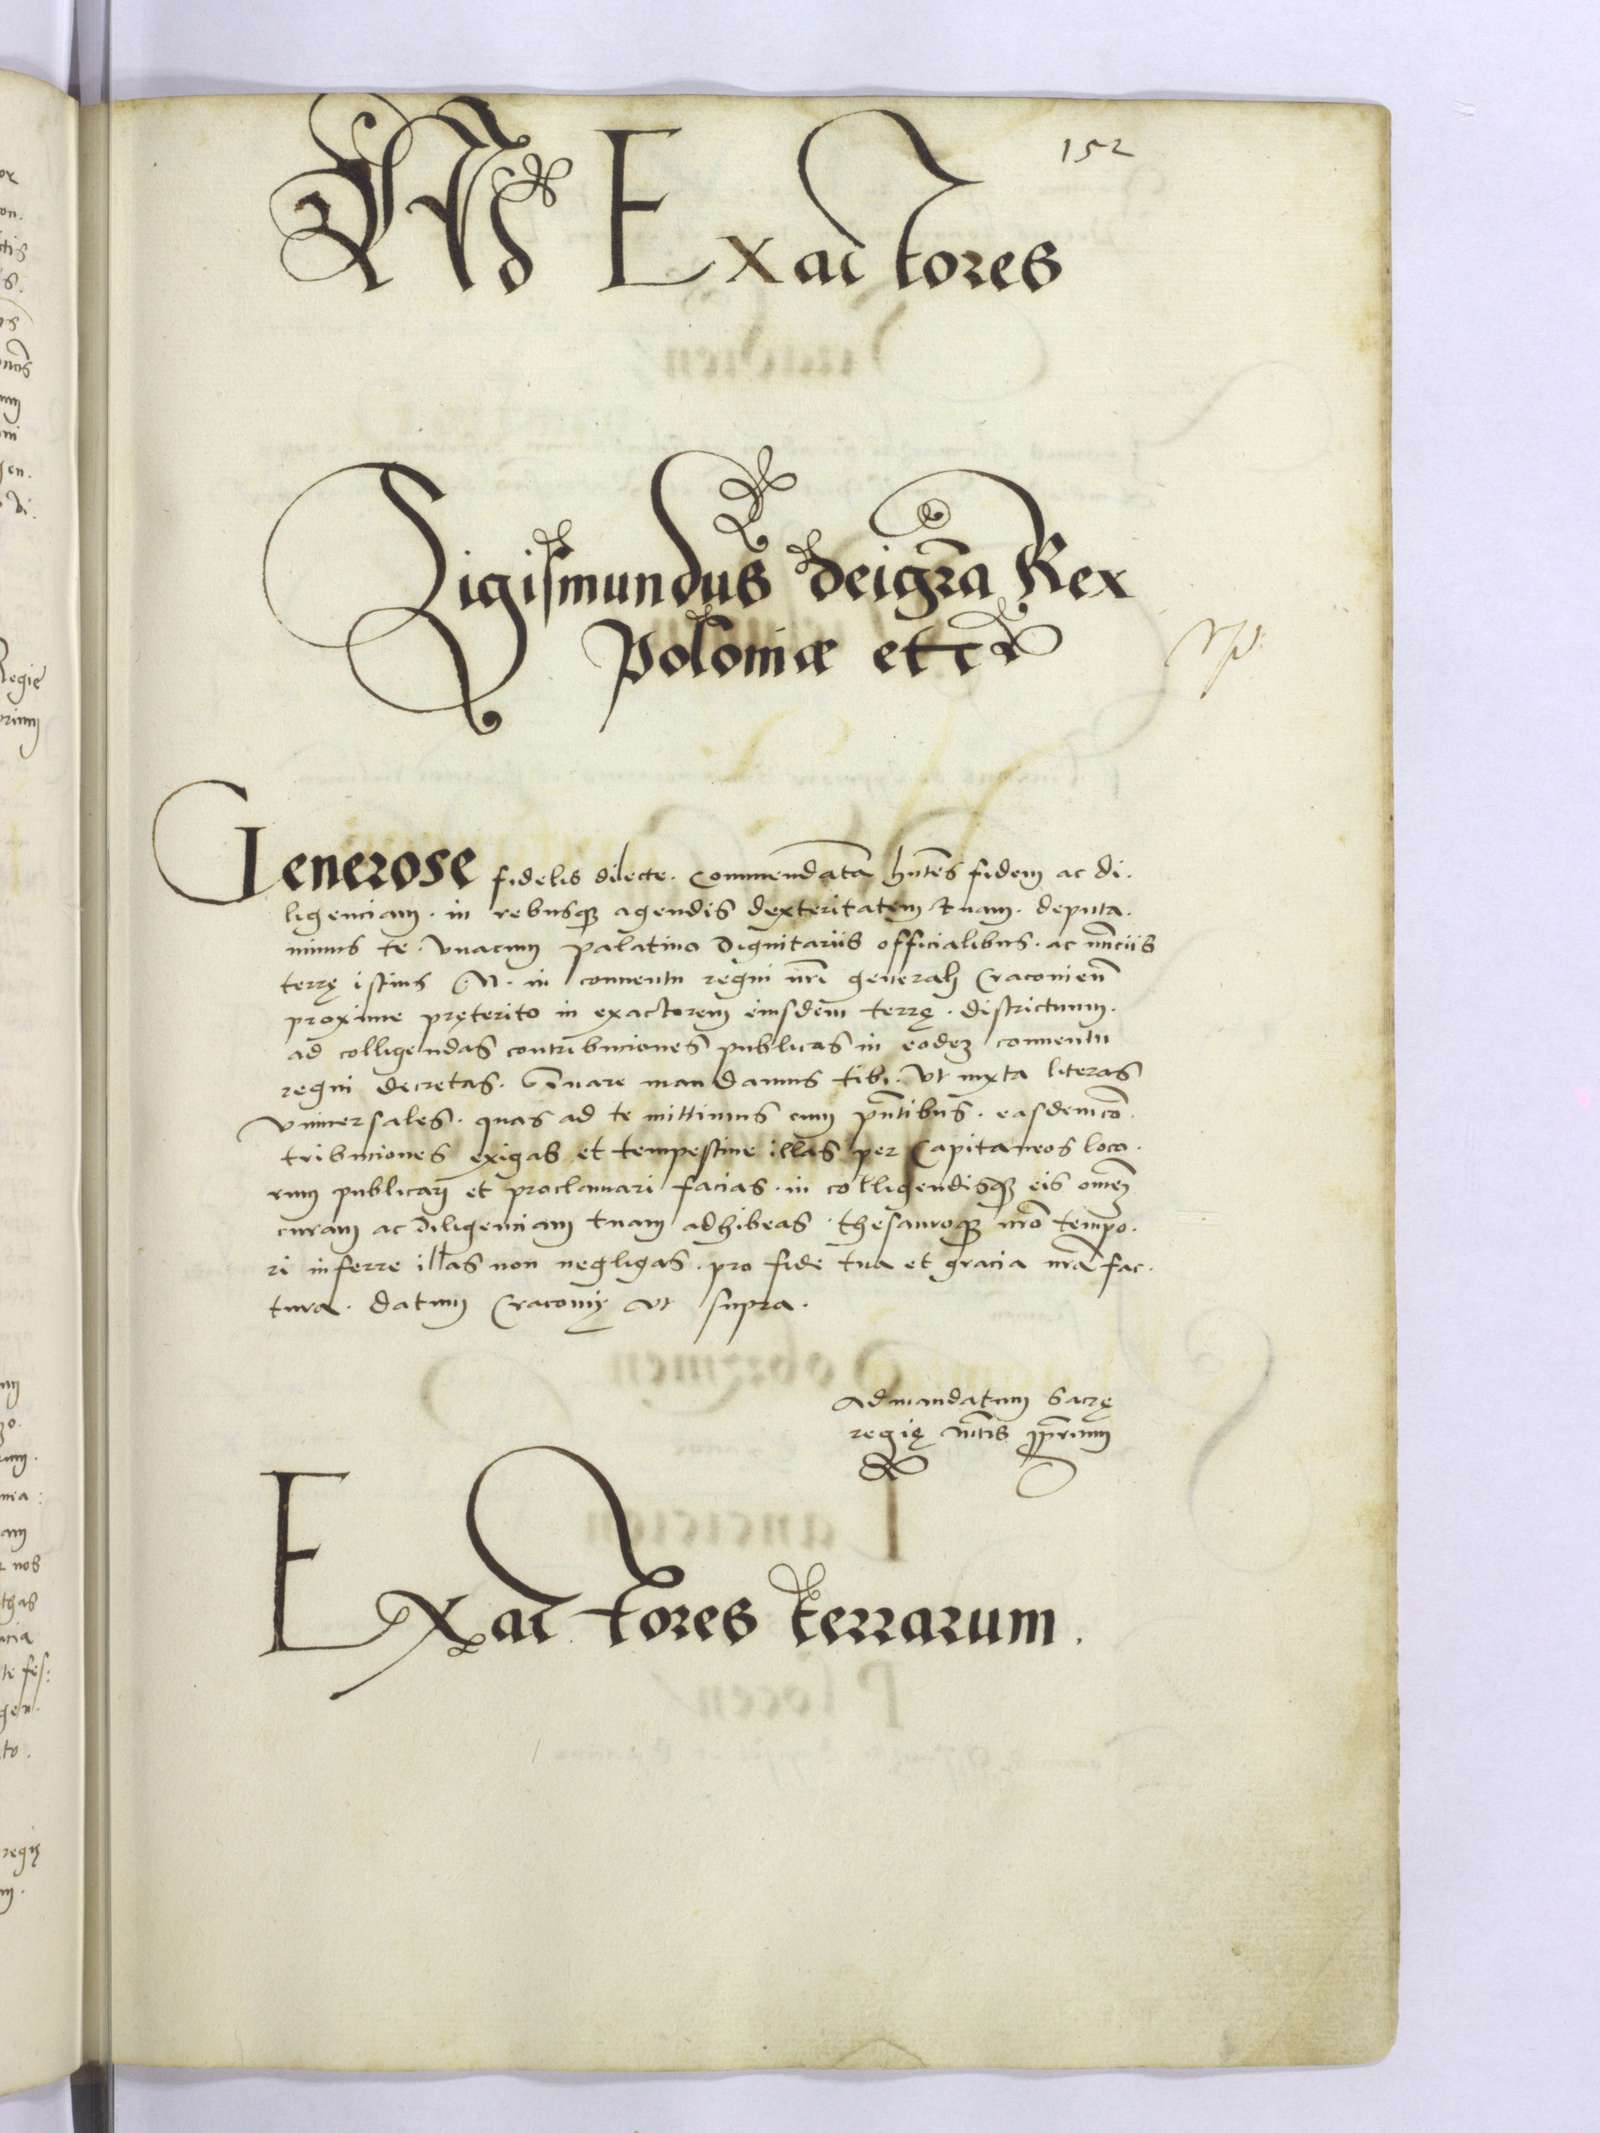 152
Ad Exactores
Sigismundus dei gr̃a Rex
Poloniæ etc
Generose fidelis dilecte. Commendatã hñtes fidem ac di.
ligenciam. in rebusqꝫ agendis dexteritatem tuam. deputa.
mimus te. vnacum palatino dignitariis officialibus. ac nũciis
terrę istius N. in conuentu regni nr̃i generali Cracouień
proxime pręterito in exactorem eiusdem terrę. districtuum.
ad colligendas contribuciones publicas in eodeꝫ conuentu
regni decretas. Quare mandamus tibi. vt iuxta literas
vniuersales. quas ad te mittimus cum pñtibus. easdem cõ.
tribuciones exigas et tempestiue illas per Capitaneos loco.
rum publicari et proclamari facias. in colligendisqꝫ eis omeꝫ
curam ac diligenciam tuam adhibeas. thesauroqꝫ nr̃o tempo.
ri inferre illas non negligas. pro fide tua et gracia nr̃a fac.
tura. datum Cracouię vt supra.
Ad mandatum sacrę
regię mt̃is ꝓprium
Exactores terrarum.